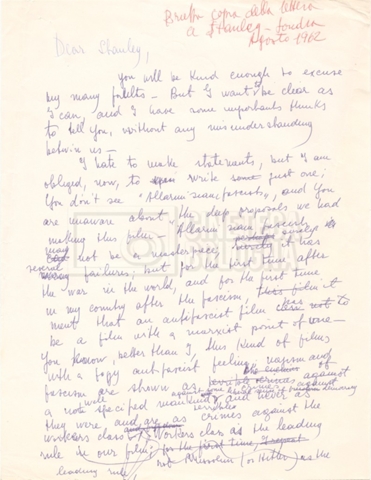 Brutta copia della lettera
a Stanley - Londra
Agosto 1962
Dear Stanley,
You will be kind enough to excuse
my many faults - But I want be clear as
I can, and I have some importants thinks
to tell you, without any misunderstanding
betwin us -
I hate to make statements, but I am
obliged, now, to write just one:
You don't see "Allarmi siam fascisti", and you
are unaware about the deep proposals we had
making this film. "Allarmi siam fascisti
may not be a masterpiece, it has
several failures; but for the first time after
the war in the world, and for the first time
in my country after the fascism, this film it
ment that an antifascist film has not to
be a film with a marxist point of view -
You know better than I, this kind of films
with a fogy antifascist feeling: nazism and
fascism are shown as terrible crimes against
a well specifed mankind, and never as
they were and are as terribles crimes against the
workers class. Workers class as the leading
rule in our film: for the first time, I repeat
not Mussolini (or Hitler) as the
leading rule,